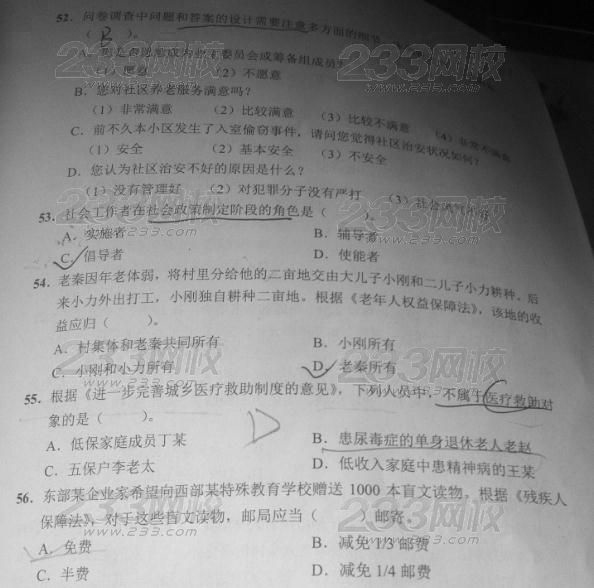 52. 问卷调查中问题和答案的设计需要注意多方面的细节
( B )。
A. 您是否愿意成为业主委员会或筹备组成员?
(1) 愿意 (2) 不愿意
B. 您对社区养老服务满意吗?
(1) 非常满意 (2) 比较满意 (3) 比较不满意 (4) 非常不满意
C. 前不久本小区发生了入室偷窃事件, 请问您觉得社区治安状况如何?
(1) 安全 (2) 基本安全 (3) 不安全
D. 您认为社区治安不好的原因是什么?
(1) 没有管理好 (2) 对犯罪分子没有严打 (3) 社会风气不好
53. 社会工作者在社会政策制定阶段的角色是 ( )。
A. 实施者 B. 辅导者
C. 倡导者 D. 使能者
54. 老秦因年老体弱, 将村里分给他的二亩地交由大儿子小刚和二儿子小力耕种。后
来小力外出打工, 小刚独自耕种二亩地。根据《老年人权益保障法》, 该地的收
益应归 ( )。
A. 村集体和老秦共同所有 B. 小刚所有
C. 小刚和小力所有 D. 老秦所有
55. 根据《进一步完善城乡医疗救助制度的意见》, 下列人员中, 不属于医疗救助对
象的是 ( )。 D
A. 低保家庭成员丁某 B. 患尿毒症的单身退休老人老赵
C. 五保户李老太 D. 低收入家庭中患精神病的王某
56. 东部某企业家希望向西部某特殊教育学校赠送 1000 本盲文读物。根据《残疾人
保障法》, 对于这些盲文读物, 邮局应当 ( ) 邮寄。
A. 免费 B. 减免 1/3 邮费
C. 半费 D. 减免 1/4 邮费
233网校
www.233.com